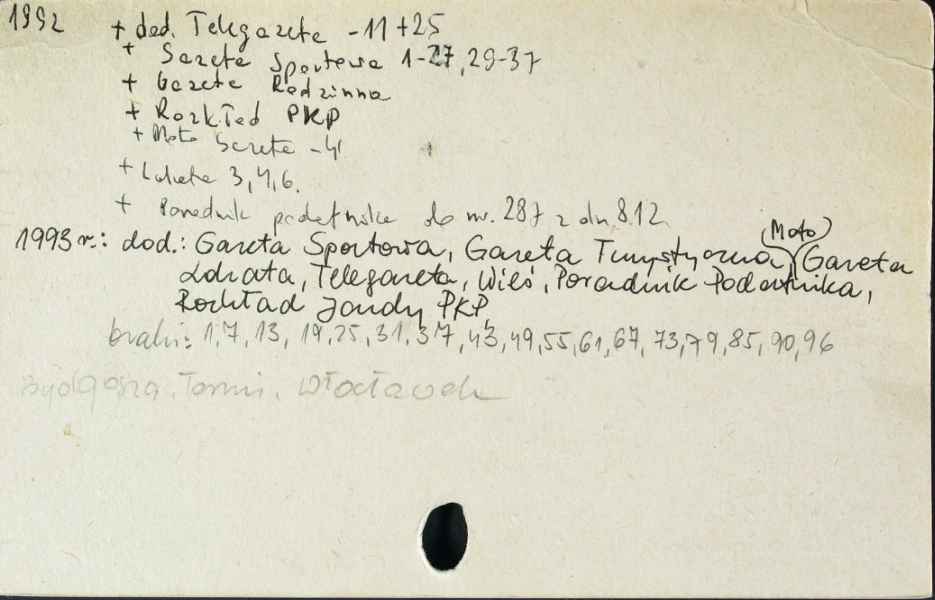 1992 + dod. Telegazeta - 11 + 25
+ Gazeta Sportowa 1-27, 29-37
+ Gazeta Rodzinna
+ Rozkład PKP
+ Moto Gazeta - 4
+ Lokata 3, 4, 6.
+ Poradnik podatnika do nr. 287 z dn. 8.12
(Moto)
1993 r.: dod.: Gazeta Sportowa, Gazeta Turystyczna, Gazeta
Lokata, Telegazeta, Wieś, Poradnik Podatnika,
Rozkład Jazdy PKP
braki: 1, 7, 13, 19, 25, 31, 37, 43, 49, 55, 61, 67, 73, 79, 85, 90, 96
Bydgoszcz, Toruń, Włocławek